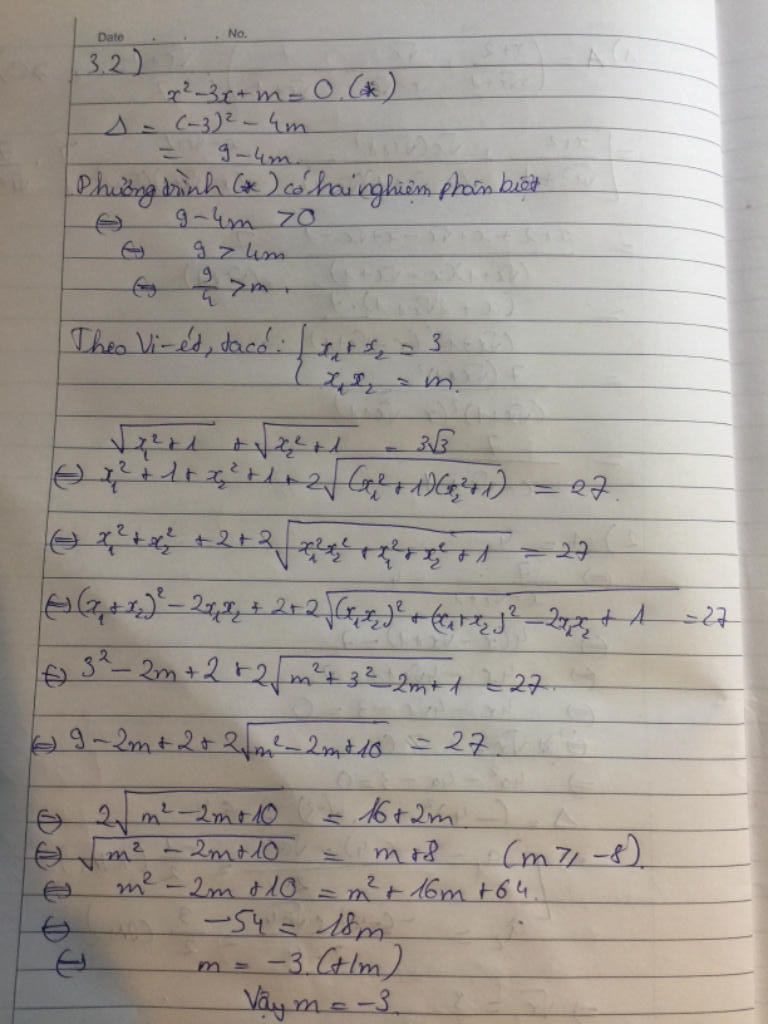 Date . . . No.
3.2)
x² - 3x + m = 0 (*)
Δ = (-3)² - 4m
= 9 - 4m.
Phường trình (*) có hai nghiệm phân biệt
⇔ 9 - 4m > 0
⇔ 9 > 4m
⇔ 9/4 > m.
Theo Vi-ét, ta có: { x₁ + x₂ = 3
x₁x₂ = m.
√(x₁² + 1) + √(x₂² + 1) = 3√3
⇔ x₁² + 1 + x₂² + 1 + 2√((x₁² + 1)(x₂² + 1)) = 27.
⇔ x₁² + x₂² + 2 + 2√(x₁²x₂² + x₁² + x₂² + 1) = 27
⇔ (x₁ + x₂)² - 2x₁x₂ + 2 + 2√((x₁x₂)² + (x₁ + x₂)² - 2x₁x₂ + 1) = 27
⇔ 3² - 2m + 2 + 2√(m² + 3² - 2m + 1) = 27.
⇔ 9 - 2m + 2 + 2√(m² - 2m + 10) = 27.
⇔ 2√(m² - 2m + 10) = 16 + 2m
⇔ √(m² - 2m + 10) = m + 8 (m ⩾ -8).
⇔ m² - 2m + 10 = m² + 16m + 64.
⇔ -54 = 18m
⇔ m = -3. (t/m)
Vậy m = -3.